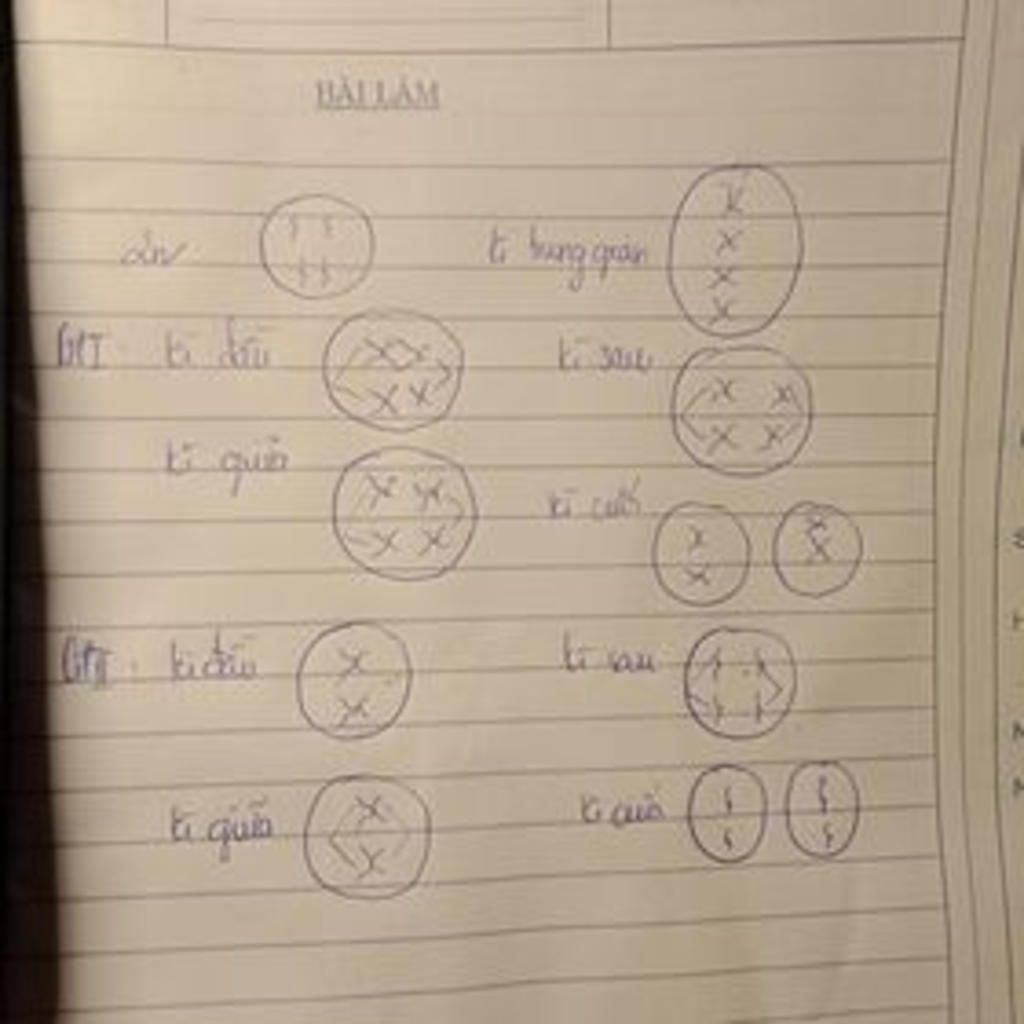 BÀI LÀM
2n kì trung gian
GPI: kì đầu kì sau
kì giữa
kì cuối
GPII: kì đầu kì sau
kì giữa kì cuối